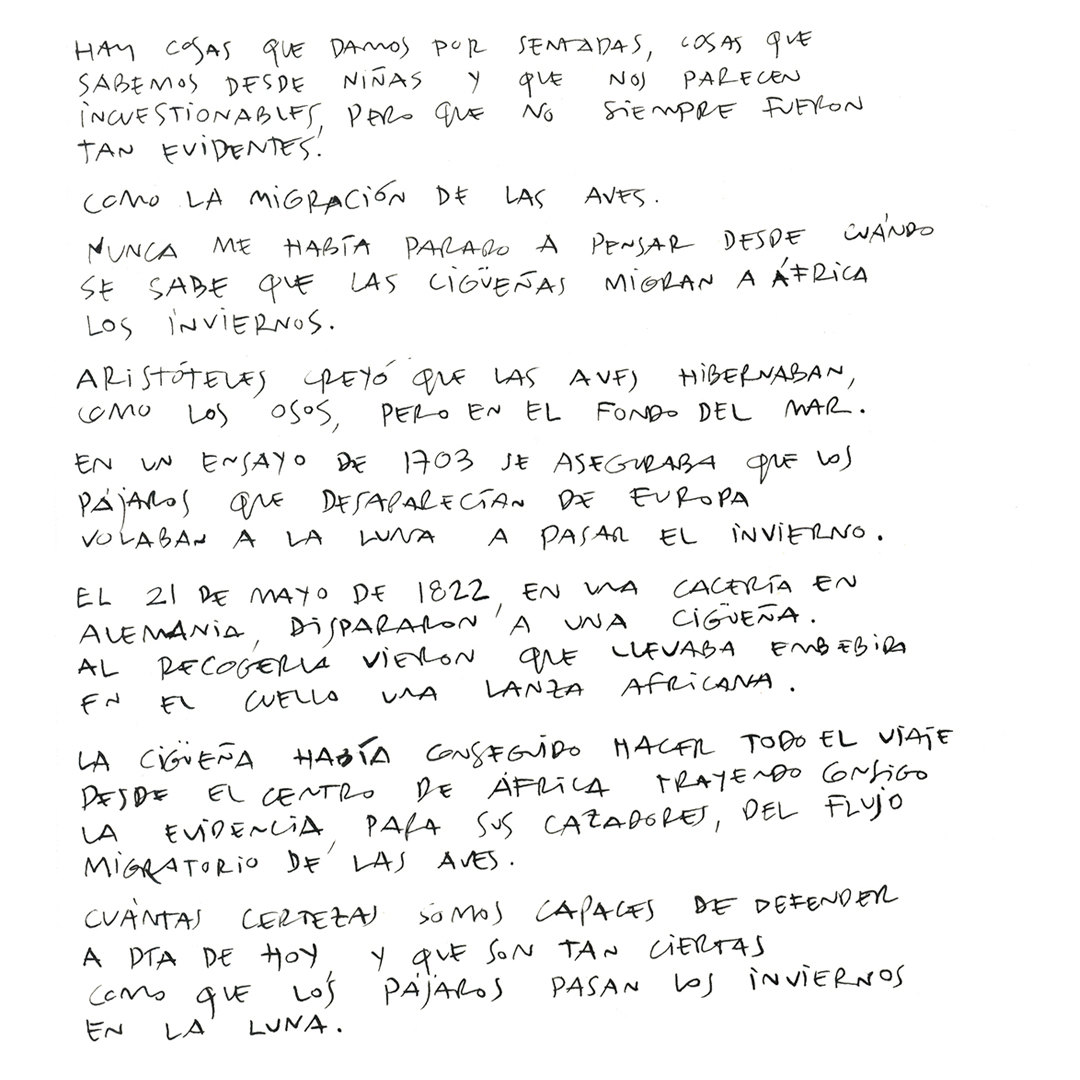 HAY COSAS QUE DAMOS POR SENTADAS, COSAS QUE
SABEMOS DESDE NIÑAS Y QUE NOS PARECEN
INCUESTIONABLES, PERO QUE NO SIEMPRE FUERON
TAN EVIDENTES.
COMO LA MIGRACIÓN DE LAS AVES.
NUNCA ME HABÍA PARADO A PENSAR DESDE CUÁNDO
SE SABE QUE LAS CIGÜEÑAS MIGRAN A ÁFRICA
LOS INVIERNOS.
ARISTÓTELES CREYÓ QUE LAS AVES HIBERNABAN,
COMO LOS OSOS, PERO EN EL FONDO DEL MAR.
EN UN ENSAYO DE 1703 SE ASEGURABA QUE LOS
PÁJAROS QUE DESAPARECÍAN DE EUROPA
VOLABAN A LA LUNA A PASAR EL INVIERNO.
EL 21 DE MAYO DE 1822, EN UNA CACERÍA EN
ALEMANIA, DISPARARON A UNA CIGÜEÑA.
AL RECOGERLA VIERON QUE LLEVABA EMBEBIDA
EN EL CUELLO UNA LANZA AFRICANA.
LA CIGÜEÑA HABÍA CONSEGUIDO HACER TODO EL VIAJE
DESDE EL CENTRO DE ÁFRICA TRAYENDO CONSIGO
LA EVIDENCIA, PARA SUS CAZADORES, DEL FLUJO
MIGRATORIO DE LAS AVES.
CUÁNTAS CERTEZAS SOMOS CAPACES DE DEFENDER
A DÍA DE HOY Y QUE SON TAN CIERTAS
COMO QUE LOS PÁJAROS PASAN LOS INVIERNOS
EN LA LUNA.